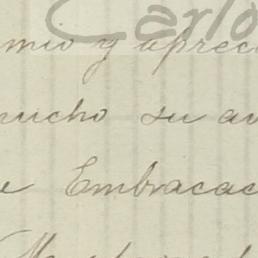 Carlo
mio y aprec
mucho su av
e Embracac